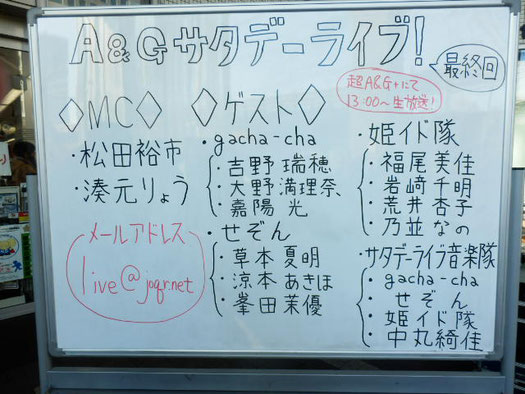 A&Gサタデーライブ!
最終回
超A&G+にて
13:00〜生放送!
◇MC◇
・松田裕市
・湊元りょう
メールアドレス
live@joqr.net
◇ゲスト◇
・gacha-cha
・吉野瑞穂
・大野満理奈
・嘉陽光
・せぞん
・草本夏明
・涼本あきほ
・峯田茉優
・姫イド隊
・福尾美佳
・岩崎千明
・荒井杏子
・乃並なの
・サタデーライブ音楽隊
・gacha-cha
・せぞん
・姫イド隊
・中丸綺佳